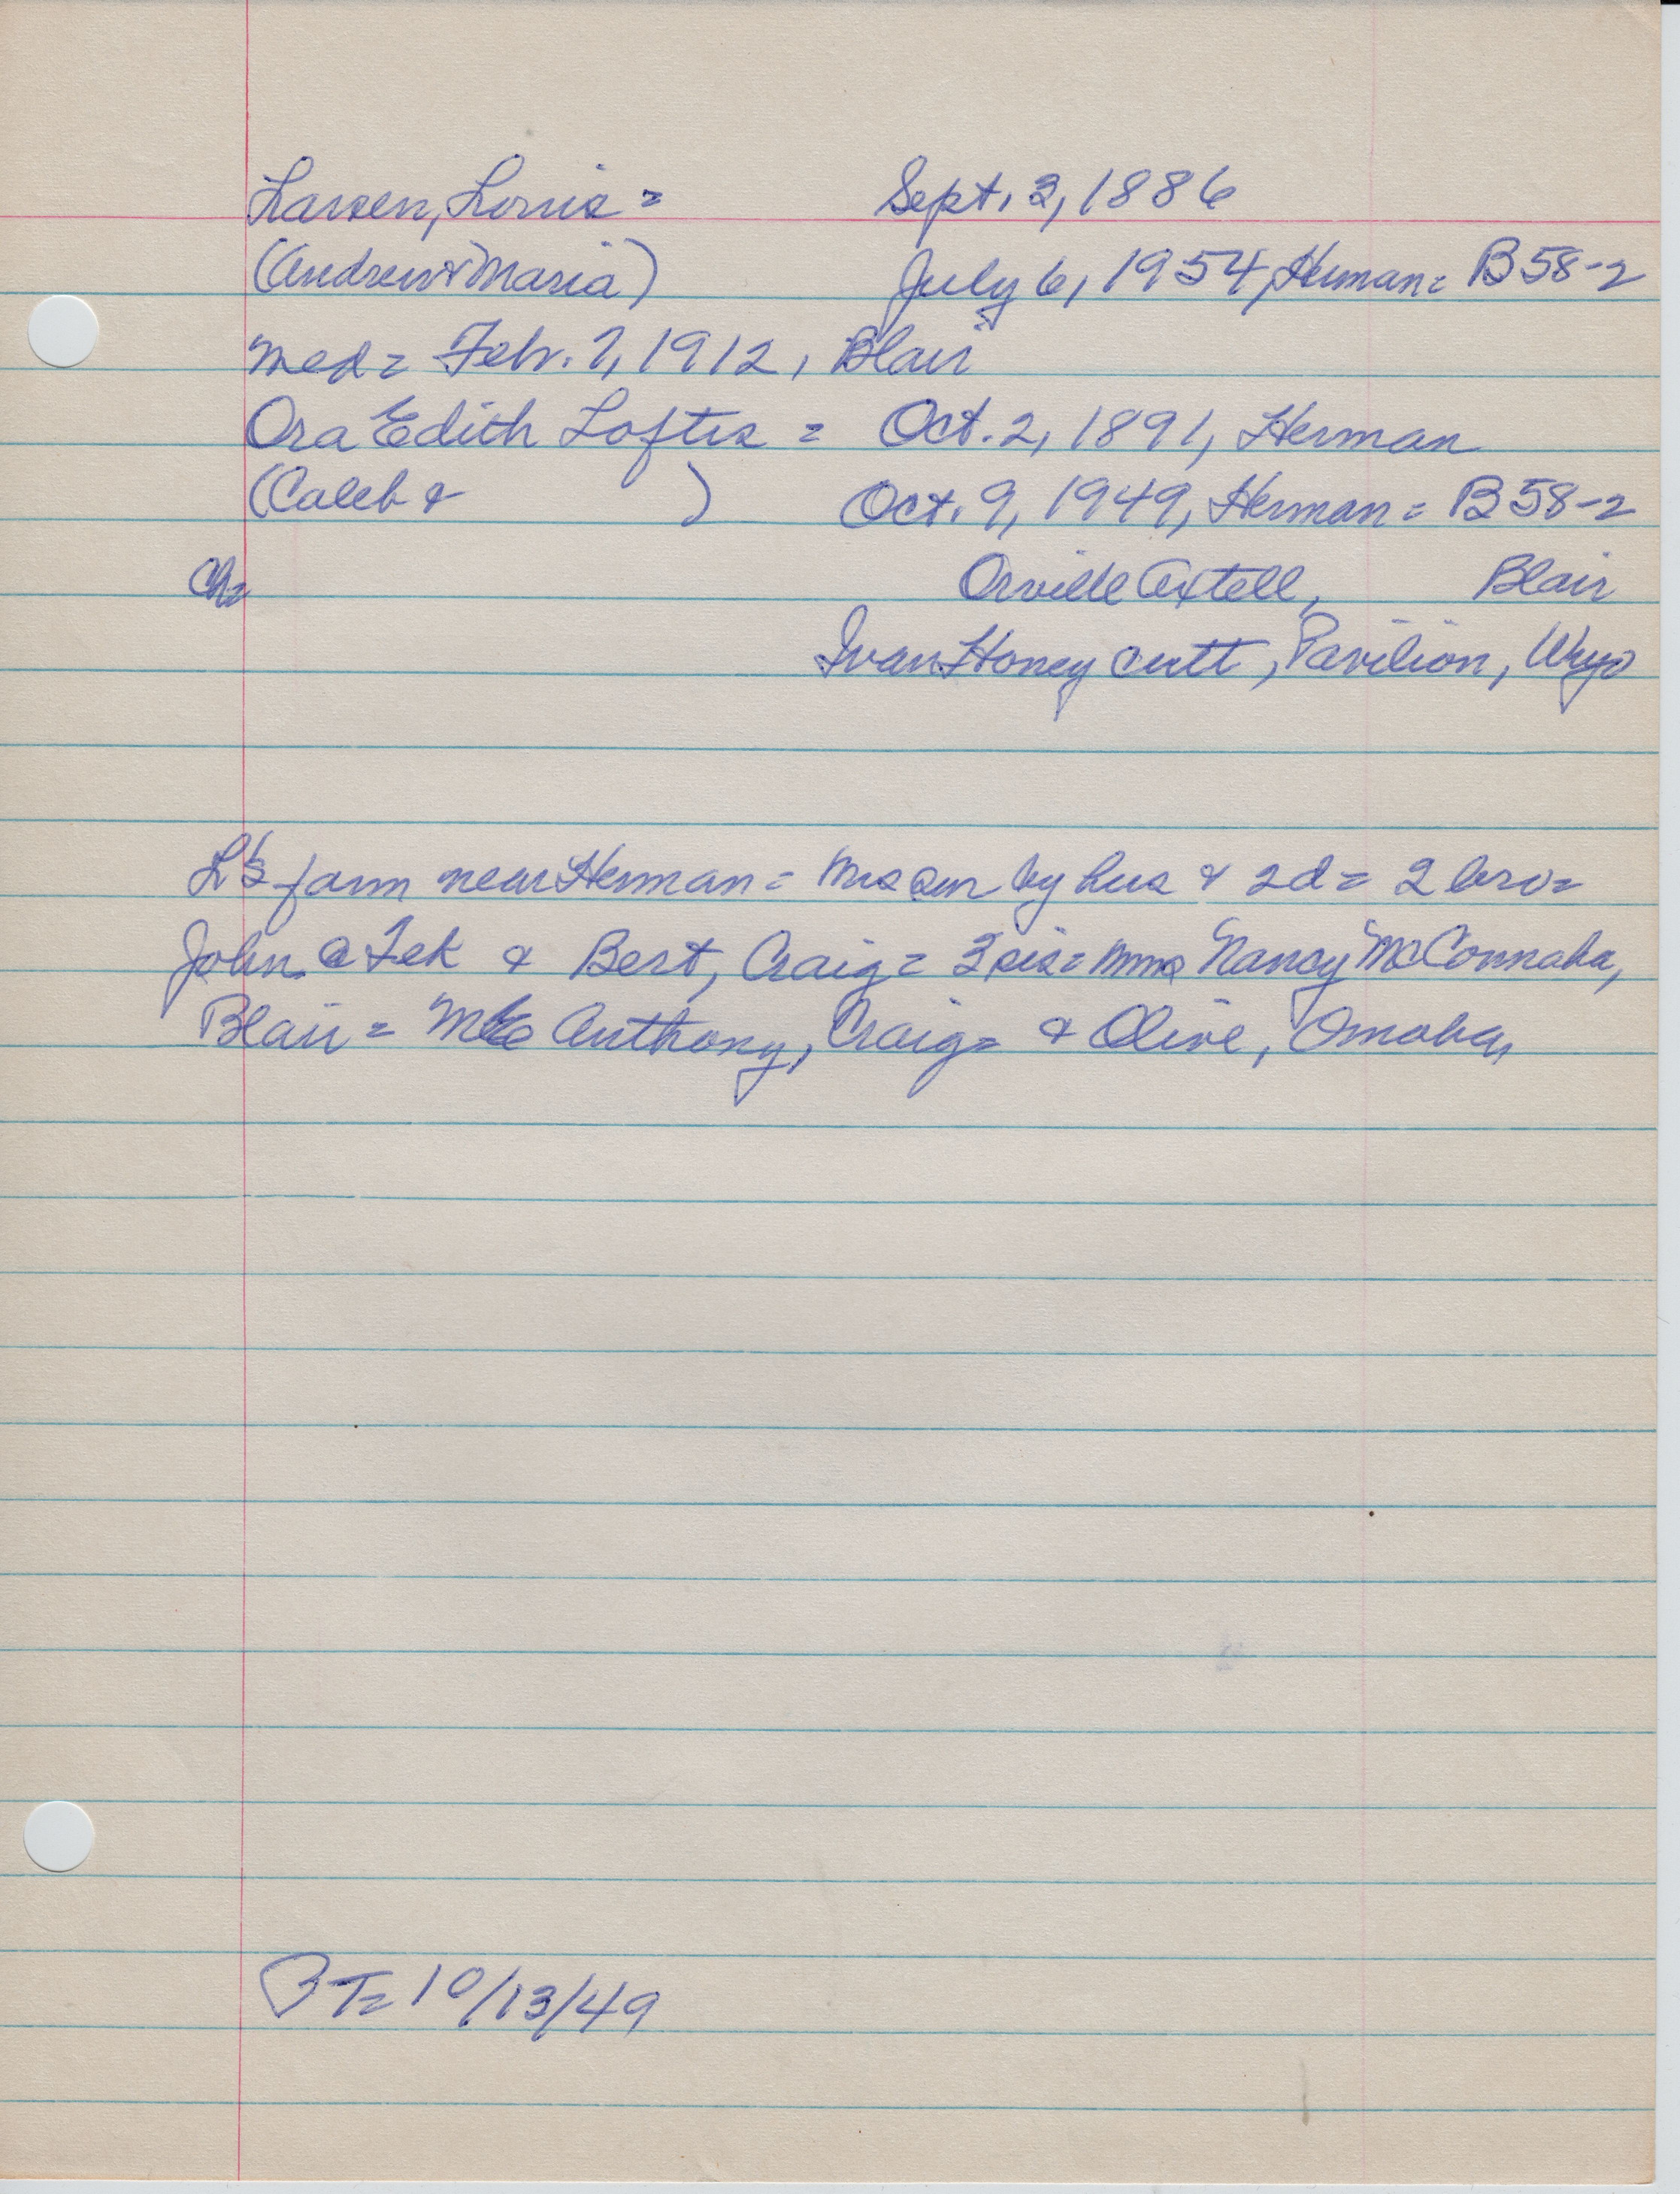 Larsen, Louis = Sept. 3, 1886
(Andrew & Maria) July 6, 1954, Herman = B 58-2
Med = Febr. 7, 1912, Blair
Ora Edith Loftis = Oct. 2, 1891, Herman
(Caleb & ) Oct. 9, 1949, Herman = B 58-2
Ch= Orville Axtell, Blair
Ivan Honey cutt, Pavilion, Wyo
L's farm near Herman = Mrs sur by hus & 2d = 2 bro=
John @ Tek & Bert, Craig = 3 sis = Mmes Nancy McConnaha,
Blair = Anthony, Craig= & Olive, Omaha,
BT= 10/13/49